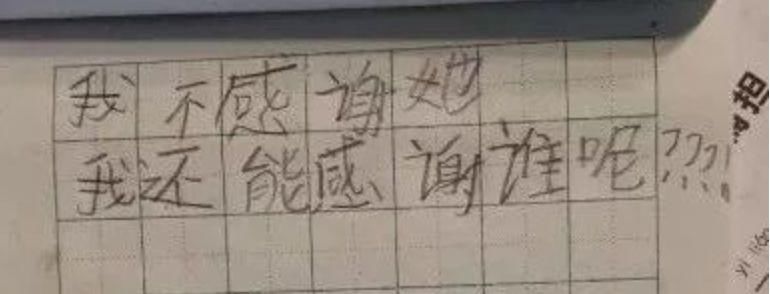 我不感谢她
我还能感谢谁呢???!
担
yì liáo